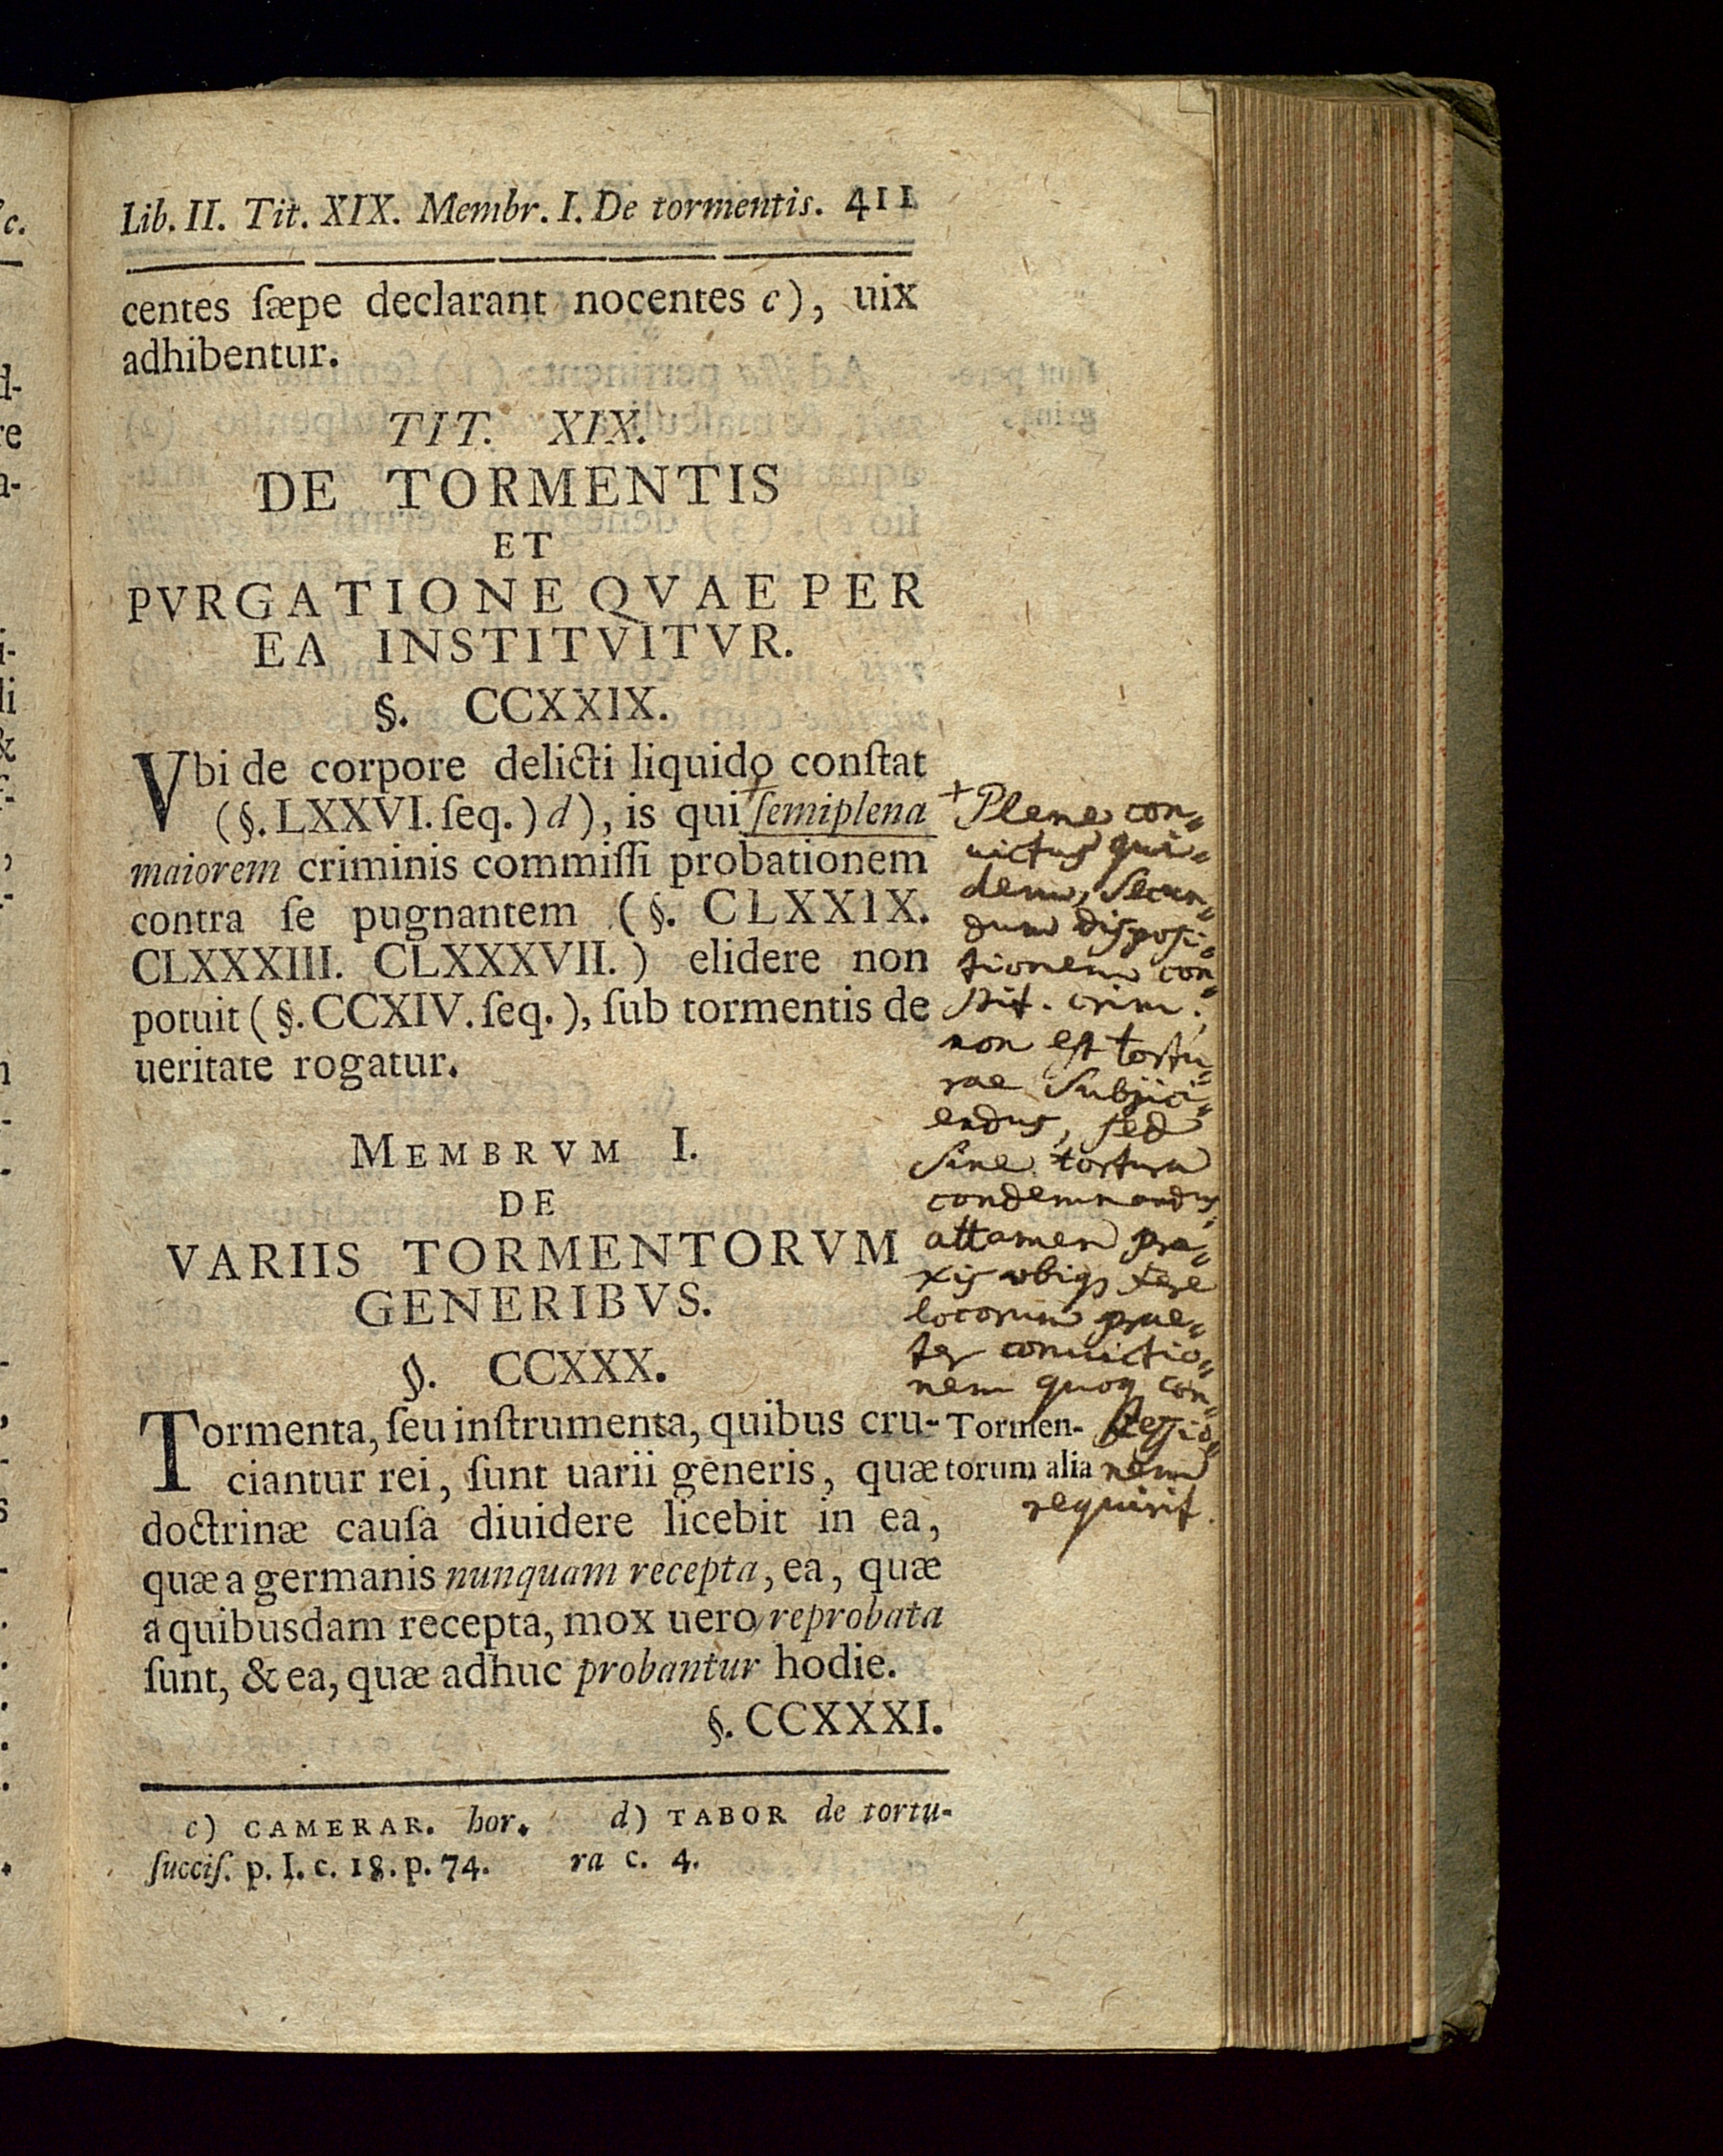 Lib. II. Tit. XIX. Membr. I. De tormentis. 411
centes ſæpe declarant nocentes c), uix
adhibentur.
TIT. XIX.
DE TORMENTIS
ET
PVRGATIONE QVAE PER
EA INSTITVITVR.
§. CCXXIX.
Vbi de corpore delicti liquido conſtat
(§. LXXVI. ſeq.) d), is qui + ſemiplena
maiorem criminis commiſſi probationem
contra ſe pugnantem (§. CLXXIX.
CLXXXIII. CLXXXVII.) elidere non
potuit (§. CCXIV. ſeq.), ſub tormentis de
ueritate rogatur.
+ Plene con-
uictus qui-
dem, Secun-
dum dispoſi-
tionem con-
ſtit. crim.
non eſt tortu-
rae Subjici-
endus, ſed
Sine tortura
condemnandus,
attamen pra-
xis ubiq; fere
locorum prae-
ter conuictio-
nem quoq con-
feſſio-
nem
requirit.
MEMBRVM I.
DE
VARIIS TORMENTORVM
GENERIBVS.
§. CCXXX.
Tormenta, ſeu inſtrumenta, quibus cru-
ciantur rei, ſunt uarii generis, quæ
doctrinæ cauſa diuidere licebit in ea,
quæ a germanis nunquam recepta, ea, quæ
a quibusdam recepta, mox uero reprobata
ſunt, & ea, quæ adhuc probantur hodie.
Tormen-
torum alia
§. CCXXXI.
c) CAMERAR. hor.
ſucciſ. p. I. c. 18. p. 74.
d) TABOR de tortu-
ra c. 4.